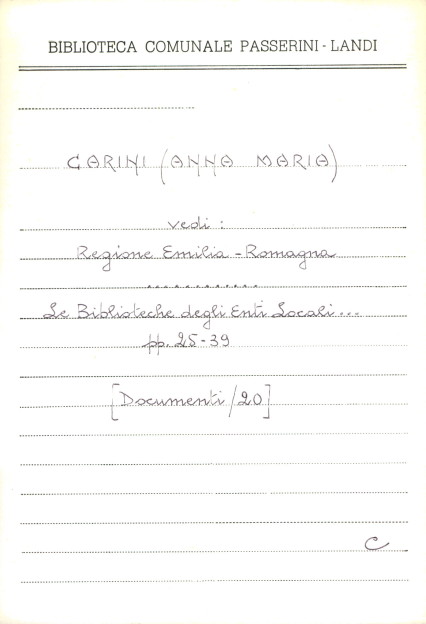 BIBLIOTECA COMUNALE PASSERINI - LANDI
CARINI (ANNA MARIA)
vedi :
Regione Emilia - Romagna
............
Le Biblioteche degli Enti Locali ...
pp. 25-39
[Documenti/20]
C